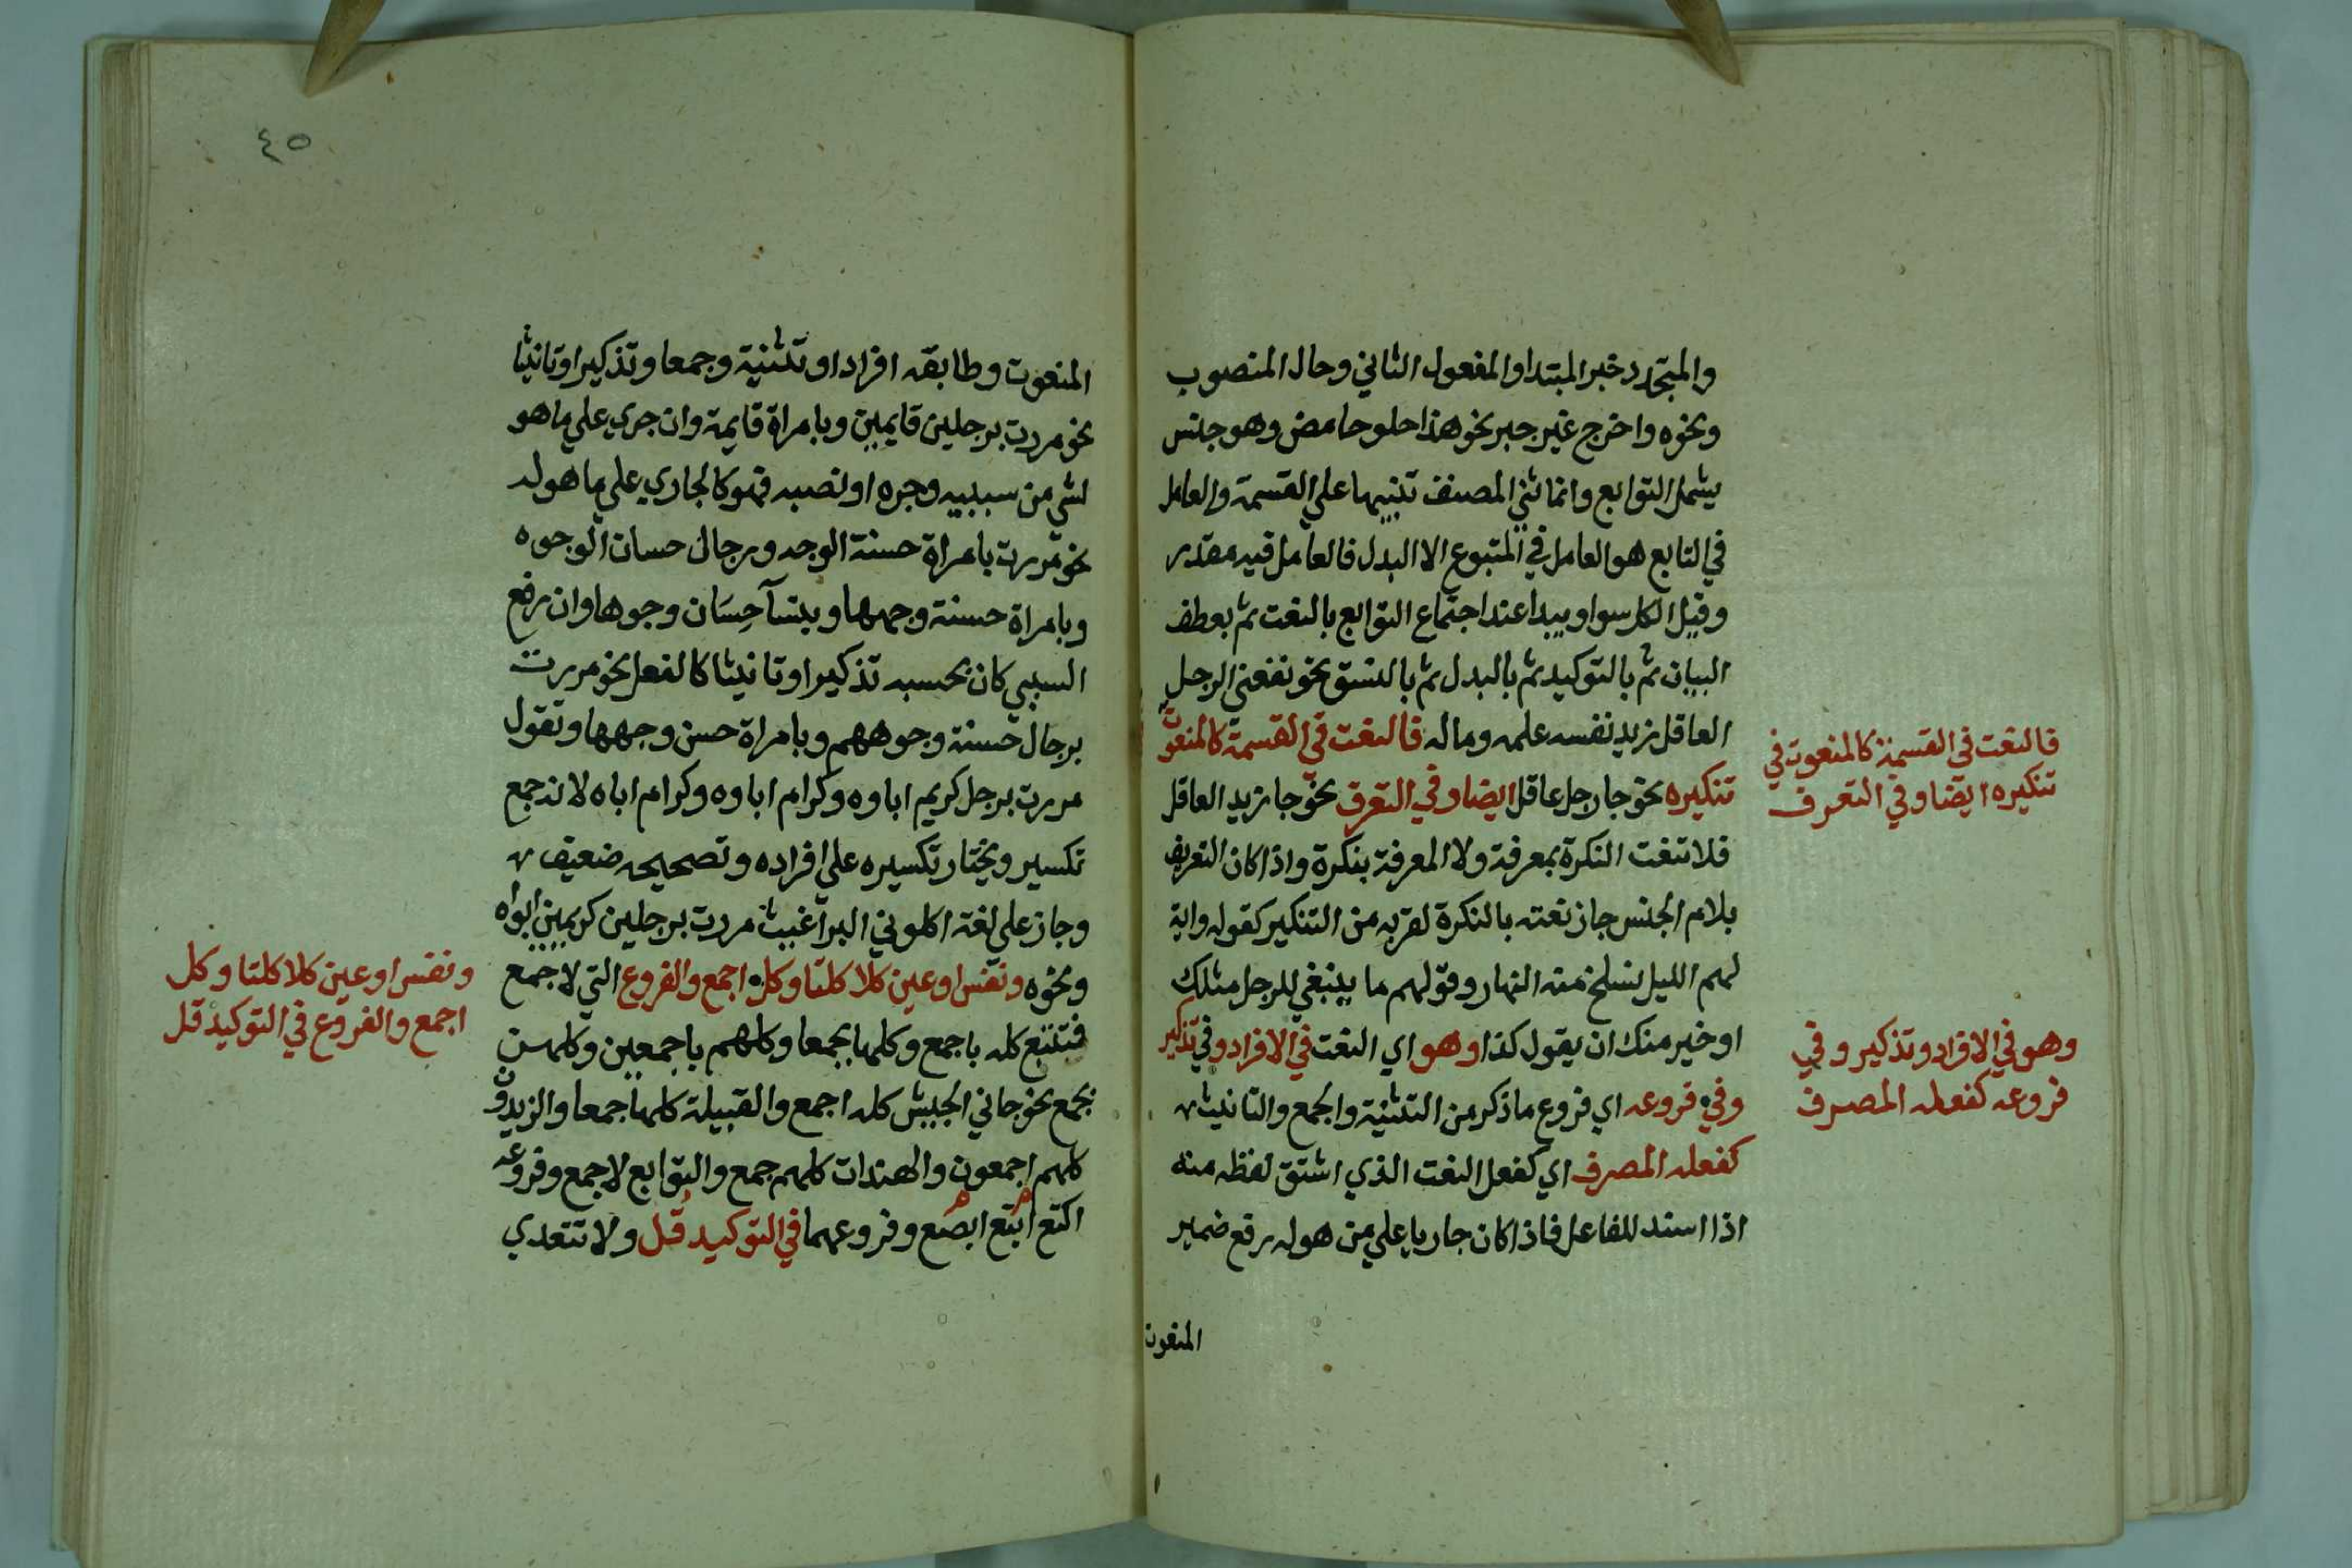 والمتجدد خبر المبتدا والمفعول الثاني وحال المنصوب
ونحوه واخرج غير خبر نحو هذا حلو حامض وهو جنس
يشمل التوابع وانما ثني المصنف تنبيها علي القسمة والعامل
في التابع هو العامل في المتبوع الا البدل فالعامل فيه مقدر
وقيل الكل سوا ويبدا عند اجتماع التوابع بالنعت ثم بعطف
البيان ثم بالتوكيد ثم بالبدل ثم بالنسق نحو نفعني الرجل
العاقل زيد نفسه علمه وماله فالنعت في القسمة كالمنعوت
تنكيره نحو جا رجل عاقل ايضا وفي التعرف نحو جا زيد العاقل
فلا تنعت النكرة بمعرفة ولا المعرفة بنكرة واذا كان التعريف
بلام الجنس جاز نعته بالنكرة لقربه من التنكير كقوله واية
لهم الليل نسلخ منه النهار وقولهم ما ينبغي للرجل مثلك
او خير منك ان يقول كذا وهو اي النعت في الافراد وفي تذكير
وفي فروعه اي فروع ما ذكر من التثنية والجمع والتانيث
كفعله المصرف اي كفعل النعت الذي اشتق لفظه منه
اذا اسند للفاعل فاذا كان جاريا علي من هو له رفع ضمير
المنعوت
فالنعت في القسمة كالمنعوت في
تنكيره ايضا وفي التعرف
وهو في الافراد وتذكير وفي
فروعه كفعله المصرف
٤٥
المنعوت وطابقه افرادا وتثنية وجمعا وتذكيرا وتانيثا
نحو مررت برجلين قايمين وبامراة قايمة وان جري علي ما هو
لشي من سببيه وجره او نصبه فهو كالجاري علي ما هو له
نحو مررت بامراة حسنة الوجه وبرجال حسان الوجوه
وبامراة حسنة وجهها وبنسآ حِسَان وجوها وان رفع
السببي كان بحسبه تذكيرا وتانيثا كالفعل نحو مررت
برجال حسنة وجوههم وبامراة حسن وجهها وتقول
مررت برجل كريم اباوه وكرام اباوه وكرام اباه لانه جمع
تكسير ويختار تكسيره علي افراده وتصحيحه ضعيف
وجاز علي لغة اكلوني البراغيث مررت برجلين كريمين ابواه
ونحوه ونفس او عين كلا كلتا وكل اجمع والفروع التي لاجمع
فتتبع كله باجمع وكلها بجمعا وكلهم باجمعين وكلهن
بجمع نحو جاني الجيش كله اجمع والقبيلة كلها جمعا والزيدون
كلهم اجمعون والهندات كلهم جمع والتوابع لاجمع وفروعه
اكتع ابتع ابصع وفروعهما في التوكيد قُل ولا تتعدي
ونفس او عين كلا كلتا وكل
اجمع والفروع في التوكيد قل